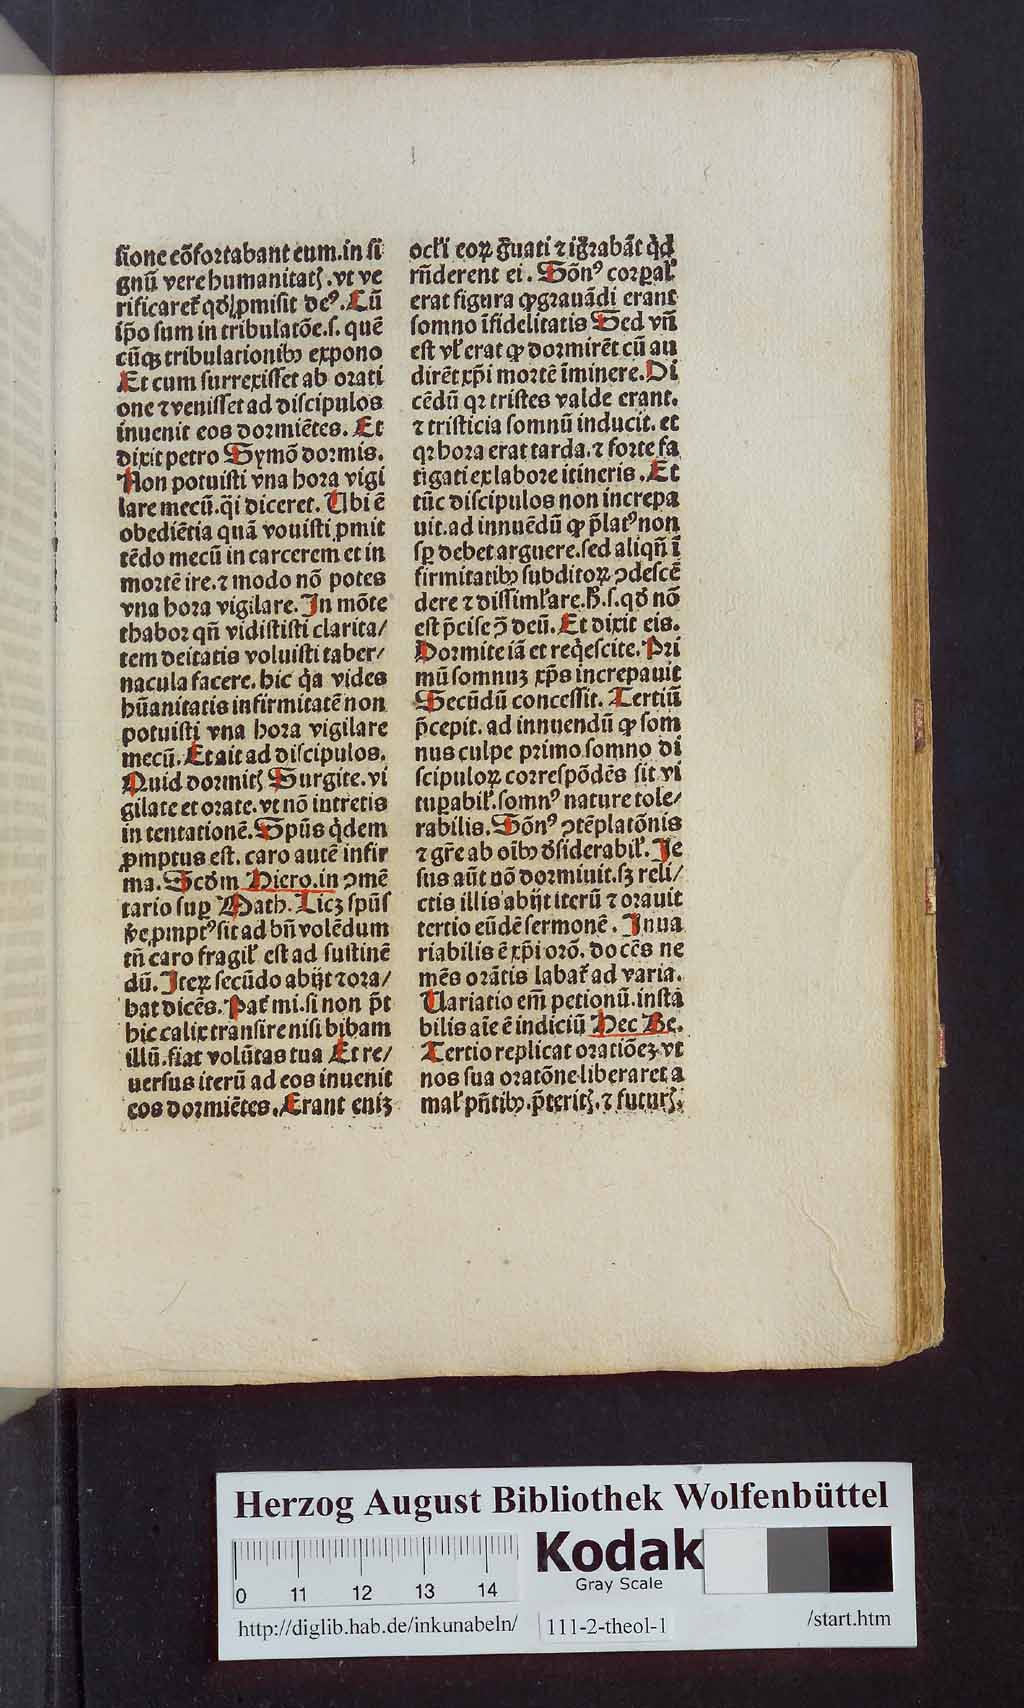 sione cõfortabant eum. in si
gnũ vere humanitatꝭ. vt ve
rificaret᷑ qd̕ ꝓmisit de⁹. Cũ
ip̃o sum in tribulatõe. s. quẽ
cũqꝫ tribulationibꝰ expono
Et cum surrexisset ab orati
one ⁊ venisset ad discipulos
inuenit eos dormiẽtes. Et
dixit petro Symõ dormis.
Non potuisti vna hora vigi
lare mecũ. q̃i diceret. Ubi ẽ
obediẽtia quã vouisti ꝓmit
tẽdo mecũ in carcerem et in
mortẽ ire. ⁊ modo nõ potes
vna hora vigilare. In mõte
thabor qñ vidististi clarita/
tem deitatis voluisti taber/
nacula facere. hic q̃a vides
hũanitatis infirmitatẽ non
potuisti vna hora vigilare
mecũ. Et ait ad discipulos.
Quid dormitꝭ Surgite. vi
gilate et orate. vt nõ intretis
in tentationẽ. Spũs q̇dem
ꝓmptus est. caro autẽ infir
ma. Scd̕m Hiero. in ↄmẽ
tario suꝑ Math. Licꝫ spũs
ꝓmpt⁹ sit ad bñ volẽdum
tñ caro fragił est ad sustinẽ
dũ. Iteꝝ secũdo abijt ⁊ ora/
bat dicẽs. Pat᷑ mi. si non p̃t
hic calix transire nisi bibam
illũ. fiat volũtas tua Et re/
uersus iterũ ad eos inuenit
eos dormiẽtes. Erant eniꝫ
ocłi eoꝝ g̃uati ⁊ ig̃rabãt q̇d
rñderent ei. Sõn⁹ corꝑał
erat figura ꝙ grauãdi erant
somno ĩfidelitatis Sed vñ
est vł erat ꝙ dormirẽt cũ au
dirẽt xp̃i mortẽ ĩminere. Di
cẽdũ qꝛ tristes valde erant.
⁊ tristicia somnũ inducit. et
qꝛ hora erat tarda. ⁊ forte fa
tigati ex labore itineris. Et
tũc discipulos non increpa
uit. ad innuẽdũ ꝙ p̃lat⁹ non
sꝑ debet arguere. sed aliqñ ĩ
firmitatibꝰ subditoꝝ ↄdescẽ
dere ⁊ dissimłare. H̃. s. qd̕ nõ
est p̃cise ↄ̃ deũ. Et dixit eis.
Dormite iã et req̇escite. Pri
mũ somnuꝫ xp̃s increpauit
Secũdũ concessit. Tertiũ
p̃cepit. ad innuendũ ꝙ som
nus culpe primo somno di
scipuloꝝ correspõdẽs sit vi
tuꝑabił. somn⁹ nature tole/
rabilis. Sõn⁹ ↄtẽplatõnis
⁊ gr̃e ab oĩbꝰ d̕siderabił. Je
sus aũt nõ dormiuit. sꝫ reli/
ctis illis abijt iterũ ⁊ orauit
tertio eũdẽ sermonẽ. Inua
riabilis ẽ xp̃i orõ. docẽs ne
mẽs orãtis labat᷑ ad varia.
Uariatio em̃ petionũ. insta
bilis aĩe ẽ indiciũ Hec Be.
Tertio replicat oratiõeꝫ. vt
nos sua oratõne liberaret a
mał pñtibꝰ. p̃teritꝭ. ⁊ futurꝭ.
Herzog August Bibliothek Wolfenbüttel
0 11 12 13 14
Kodak
Gray Scale
http://diglib.hab.de/inkunabeln/ 111-2-theol-1 /start.htm